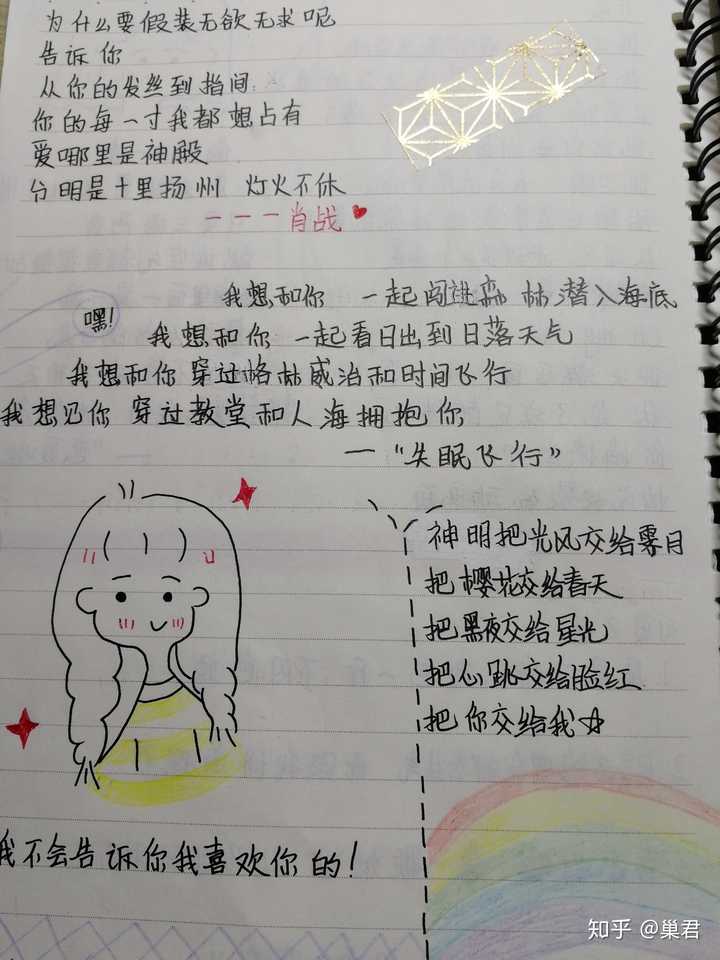 为什么要假装无欲无求呢
告诉你
从你的发丝到指间
你的每一寸我都想占有
爱哪里是神殿
分明是十里扬州 灯火不休
一一一肖战
嘿!
我想和你 一起闯进森林潜入海底
我想和你 一起看日出到日落天气
我想和你 穿过格林威治和时间飞行
我想见你 穿过教堂和人海拥抱你
一"失眠飞行"
神明把光风交给霁月
把樱花交给春天
把黑夜交给星光
把心跳交给脸红
把你交给我☆
我不会告诉你我喜欢你的!
知乎 @巢君